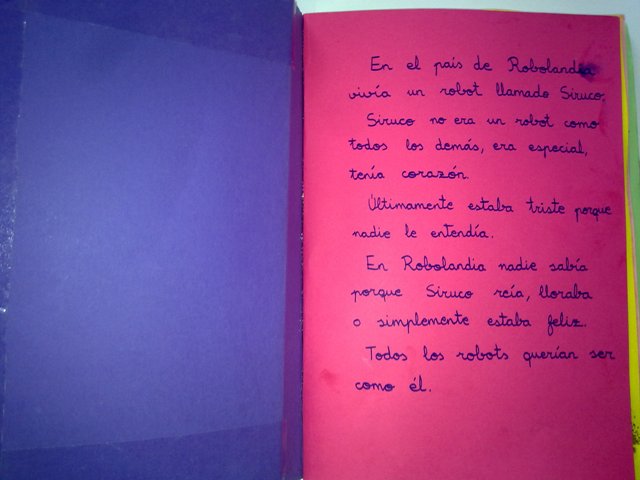 En el país de Robolandia
vivía un robot llamado Siruco.
Siruco no era un robot como
todos los demás, era especial,
tenía corazón.
Últimamente estaba triste porque
nadie le entendía.
En Robolandia nadie sabía
porque Siruco reía, lloraba
o simplemente estaba feliz.
Todos los robots querían ser
como él.